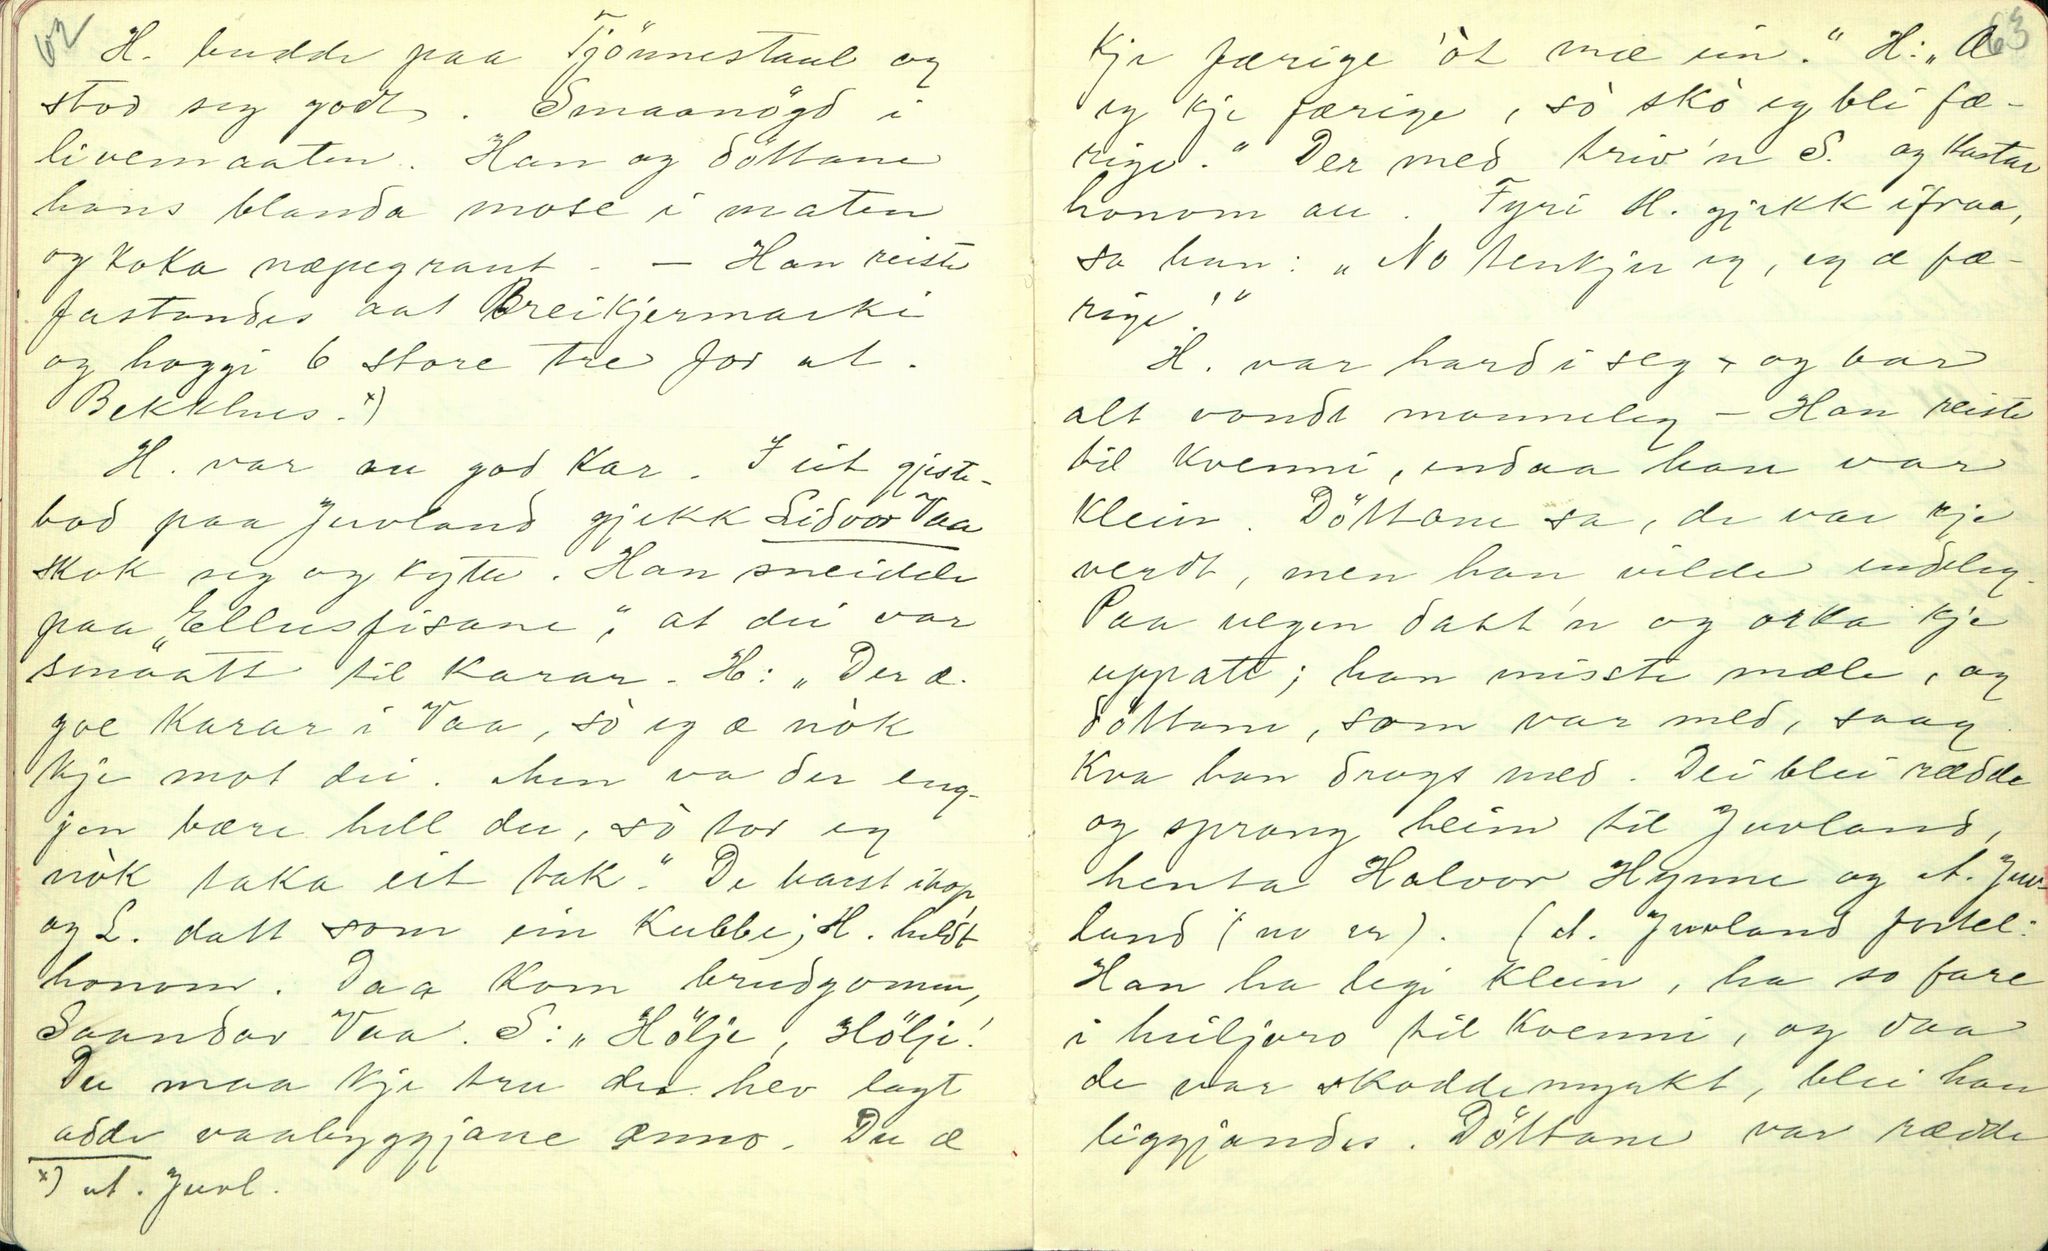 62
H. budde paa Tjönnestaul og
stod seg godt. Smaanögd i
livemaaten. Han og döttane
hans blanda mose i maten
og koka næpegraut. — Han reiste
fastandes aat Breikjermarki
og hoggi 6 store tre for at.
Bekkhus. x)
H. var au god kar. I eit gjeste-
bod paa Juvland gjekk Lidvor Vaa
skok seg og kytte. Han sneidde
paa „Ellusfisane", at dei var
småatt til karar. H: „Der æ
goe karar i Vaa, sò eg æ nòk
kje mot dei. Men va der eng-
jen bære hell du, sò tor eg
nòk taka eit tak." De barst ihop,
og L. datt som ein kubbe; H. heldt
honom. Daa kom brudgomen,
Saandar Vaa. S: „Hölje, Hölje!
Du maa kje tru du hev lagt
adde vaabyggjane ænno. Du æ
x) at. Juvl.
63
kje færige 'òt mæ ein." H: „Æ
eg kje færige, sò skò eg bli fæ-
rige." Der med treiv'n S. og kastar
honom au. Fyri H. gjekk ifraa,
sa han: „No tenkjer eg, eg æ fæ-
rige!"
H. var hard i seg, og bar
alt vondt manneleg — Han reiste
til kvenni, endaa han var
klein. Döttane sa, de var kje
verdt, men han vilde endeleg.
Paa vegen datt'n og orka kje
uppatt; han miste mæle, og
döttane, som var med, saag
kva han drogs med. Dei blei rædde
og sprang heim til Juvland,
henta Halvor Hynne og at. Juv-
land (no er). (at. Juvland fortel:
Han ha legi klein, ha so fare
i huljoro til kvenni, og daa
de var skoddemyrkt, blei han
liggjandes. Döttane var rædde